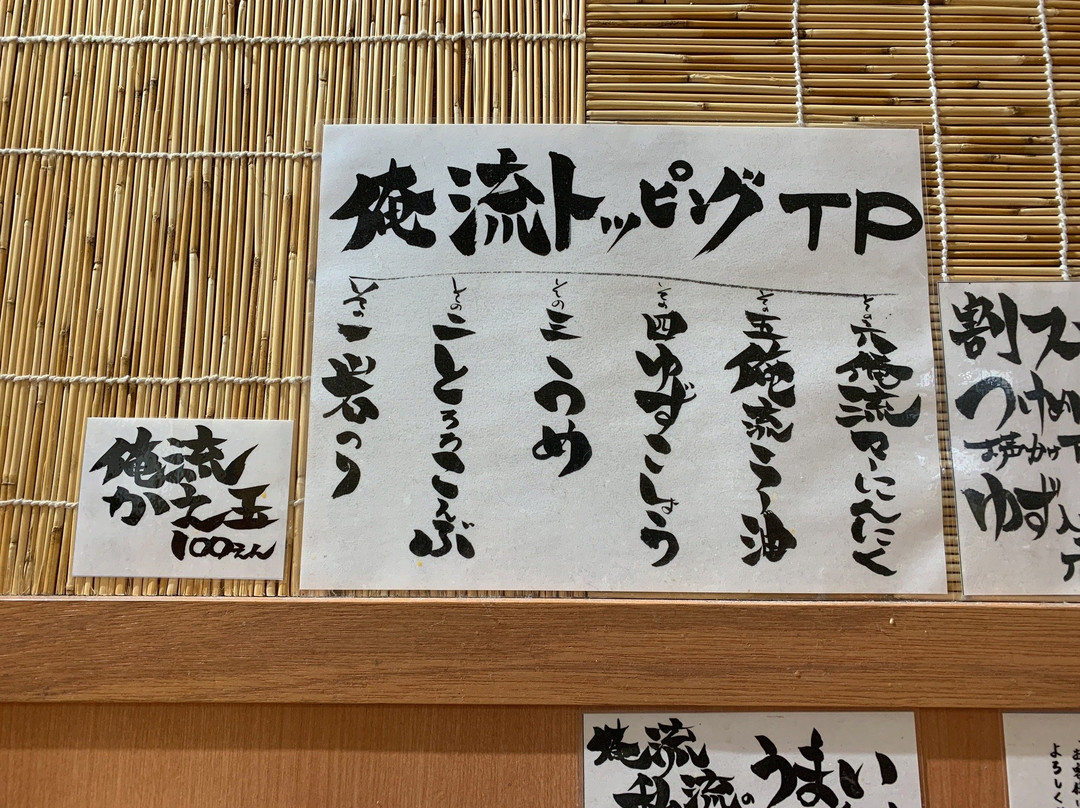 俺流トッピングTP
その一岩のり
その二とろろこんぶ
その三うめ
その四ゆずこしょう
その五俺流ラー油
その六俺流マーにんにく
俺流
かえ玉
100えん
割ス
つけめ
お声かけ
ゆず入
俺流
私流の
うまい
よろしく